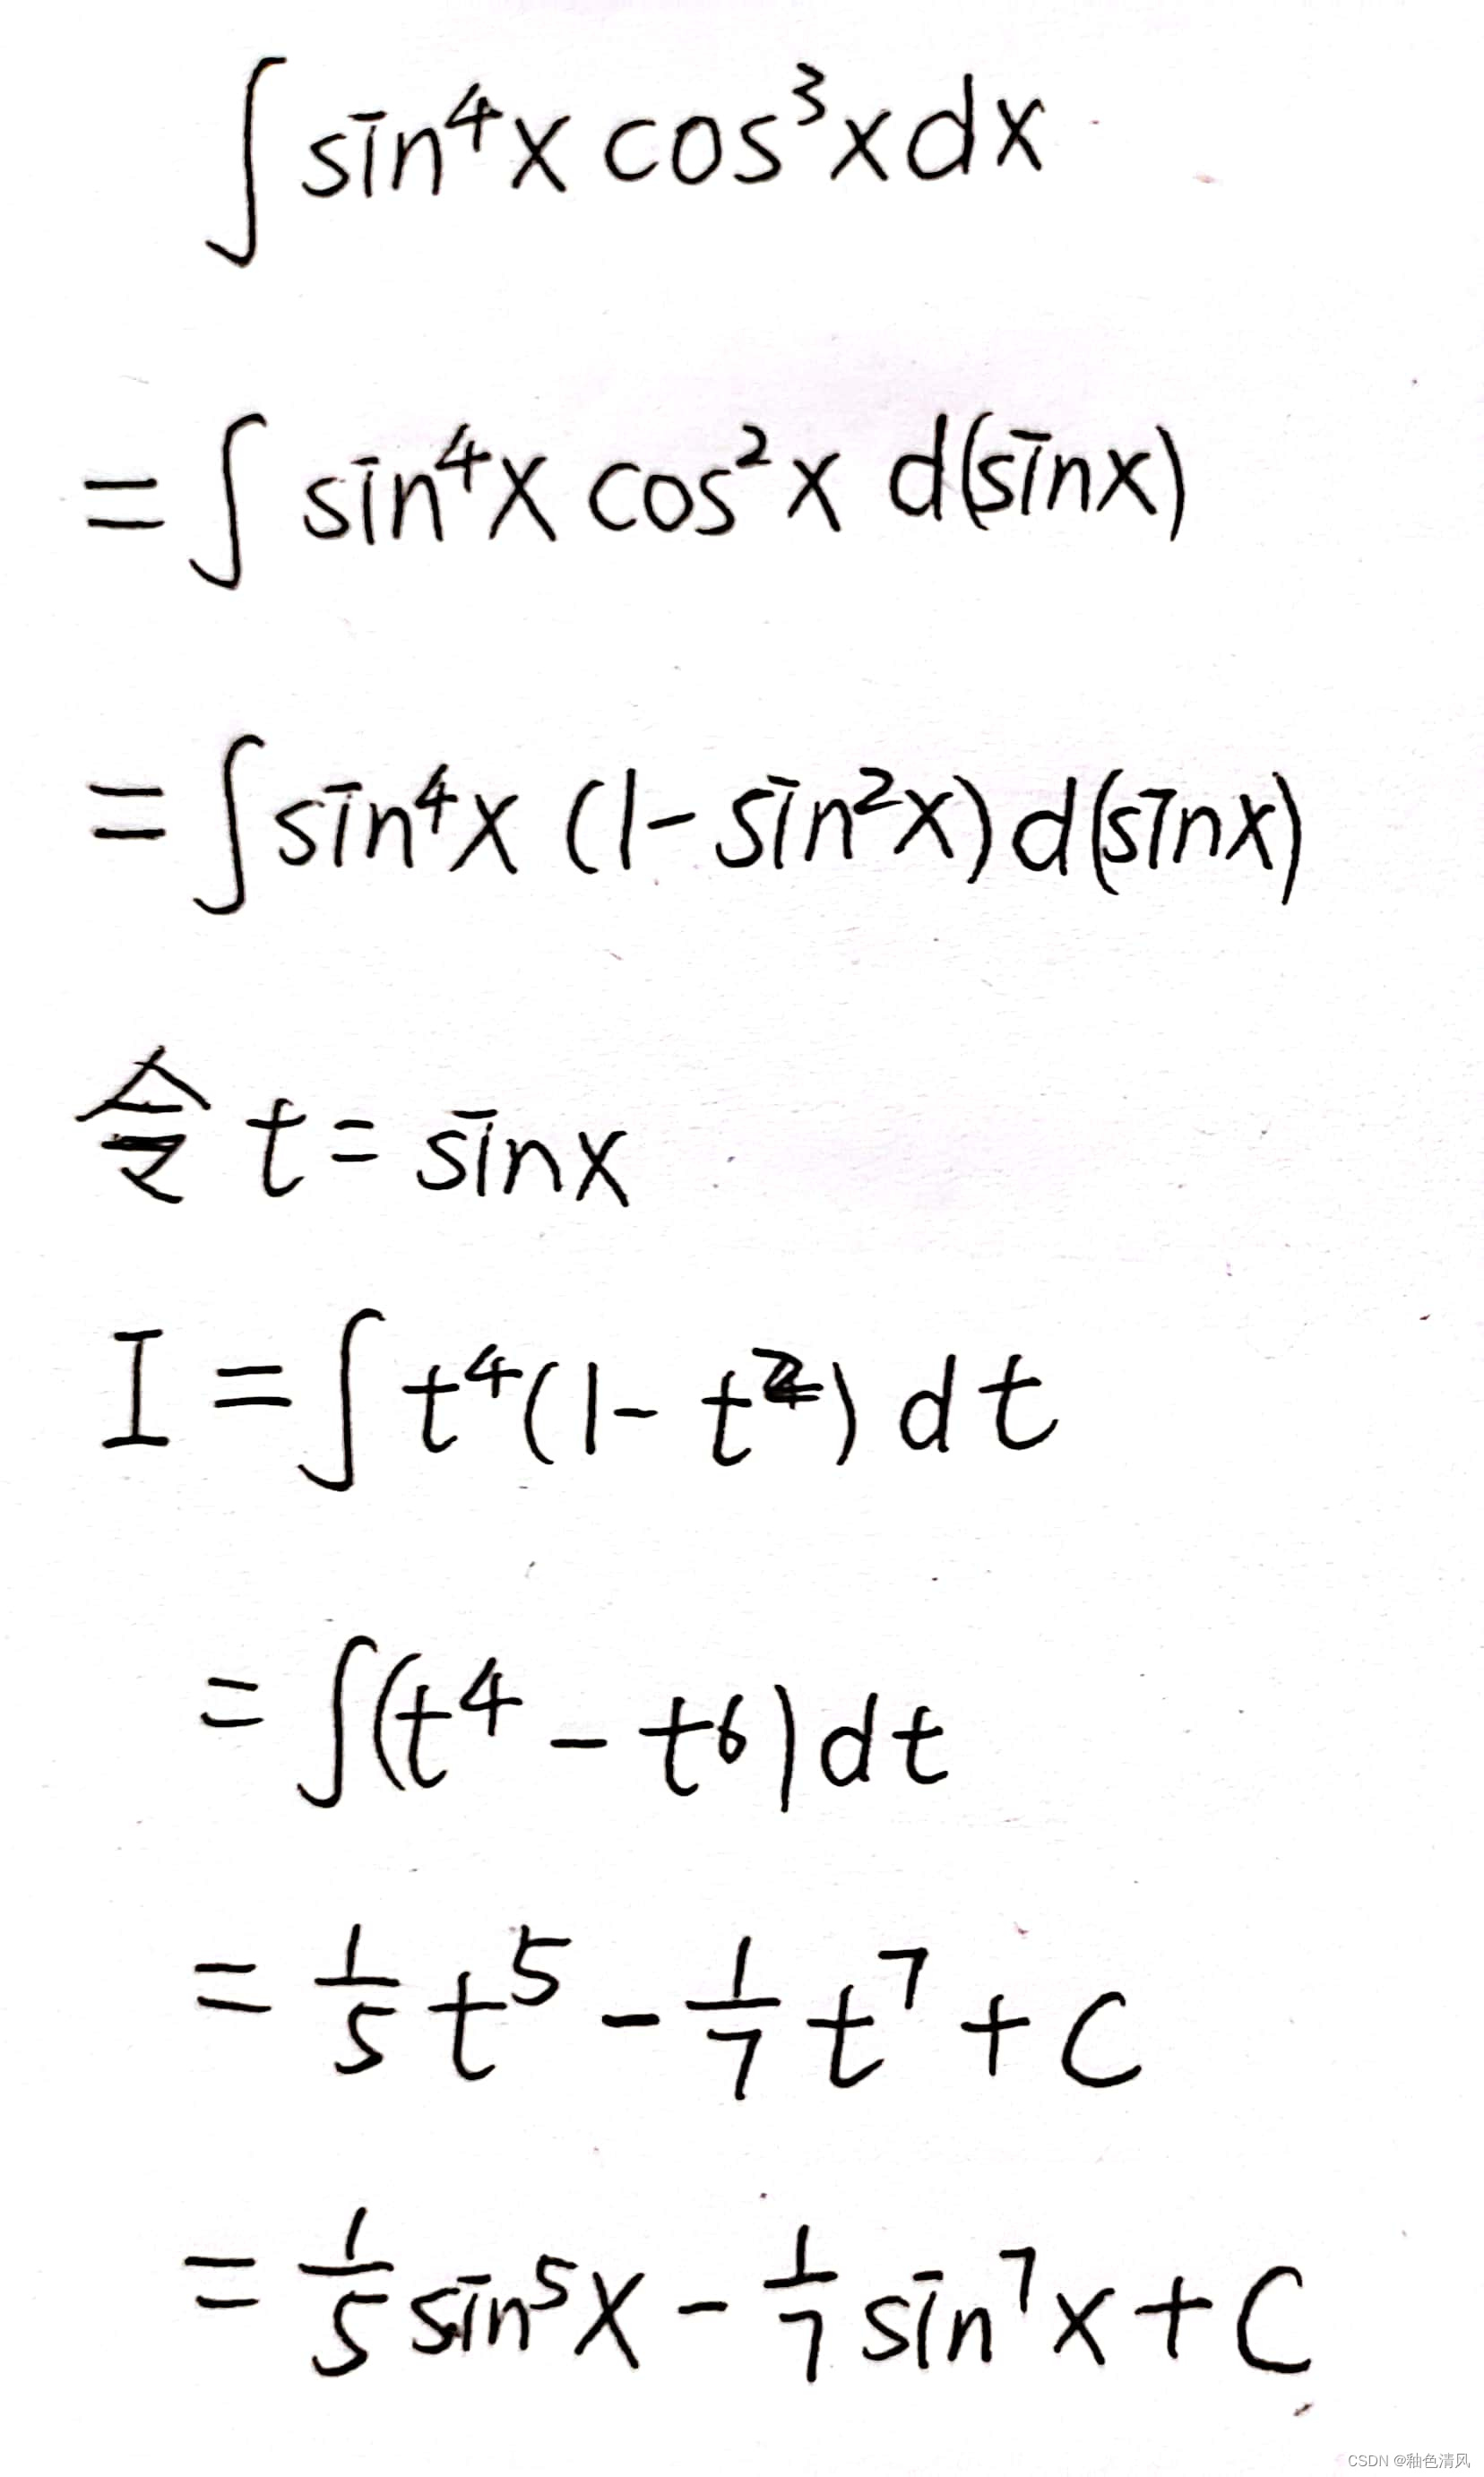 ∫sin⁴x cos³x dx
=∫sin⁴x cos²x d(sinx)
=∫sin⁴x (1-sin²x) d(sinx)
令 t=sinx
I=∫t⁴(1-t²) dt
=∫(t⁴-t⁶)dt
=1/5 t⁵-1/7 t⁷+C
=1/5 sin⁵x-1/7 sin⁷x+C
CSDN @釉色清风